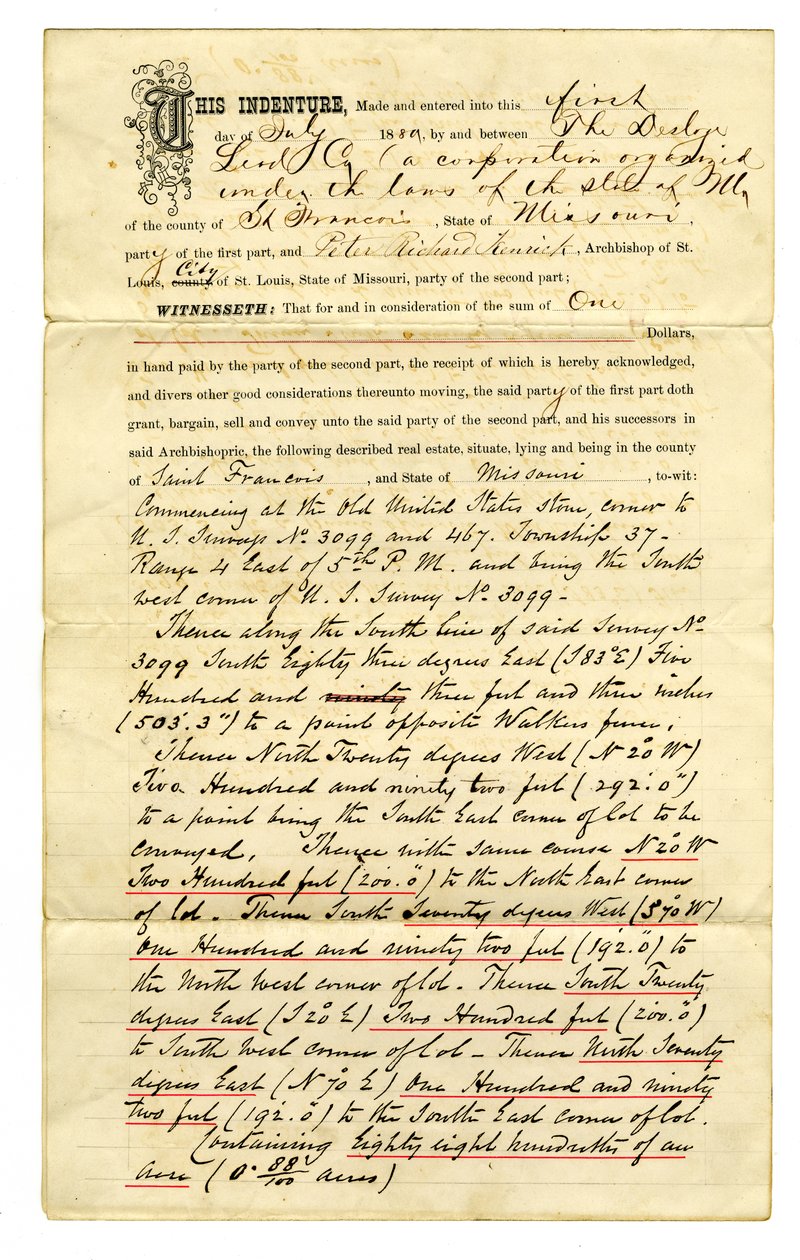 THIS INDENTURE, Made and entered into this first
day of July 1889, by and between The Desloge
Lead Co (a corporation organized
under the laws of the state of Mo
of the county of St Francois, State of Missouri,
party of the first part, and Peter Richard Kenrick, Archbishop of St.
Louis, county City of St. Louis, State of Missouri, party of the second part;
WITNESSETH: That for and in consideration of the sum of One
Dollars,
in hand paid by the party of the second part, the receipt of which is hereby acknowledged,
and divers other good considerations thereunto moving, the said party of the first part doth
grant, bargain, sell and convey unto the said party of the second part, and his successors in
said Archbishopric, the following described real estate, situate, lying and being in the county
of Saint Francois, and State of Missouri, to-wit:
Commencing at the Old United States stone, corner to
U. S. Surveys No. 3099 and 467. Township 37-
Range 4 East of 5th P. M. and being the South
west corner of U. S. Survey No. 3099-
Thence along the South line of said Survey No
3099 South Eighty three degrees East (S 83° E) Five
Hundred and ninety three feet and three inches
(503'.3") to a point opposite Walkers fence;
Thence North Twenty degrees West (N 20° W)
Two Hundred and ninety two feet (292'.0")
to a point being the South East corner of lot to be
conveyed, Thence with same course N 20° W
Two Hundred feet (200'.0") to the North East corner
of lot. Thence South Seventy degrees West (S 70° W)
One Hundred and ninety two feet (192'.0") to
the North West corner of lot. Thence South Twenty
degrees East (S 20° E) Two Hundred feet (200'.0")
to South West corner of lot - Thence North Seventy
degrees East (N 70° E) One Hundred and ninety
two feet (192'.0") to the South East corner of lot.
Containing Eighty eight hundredths of an
acre (0. 88/100 acres)